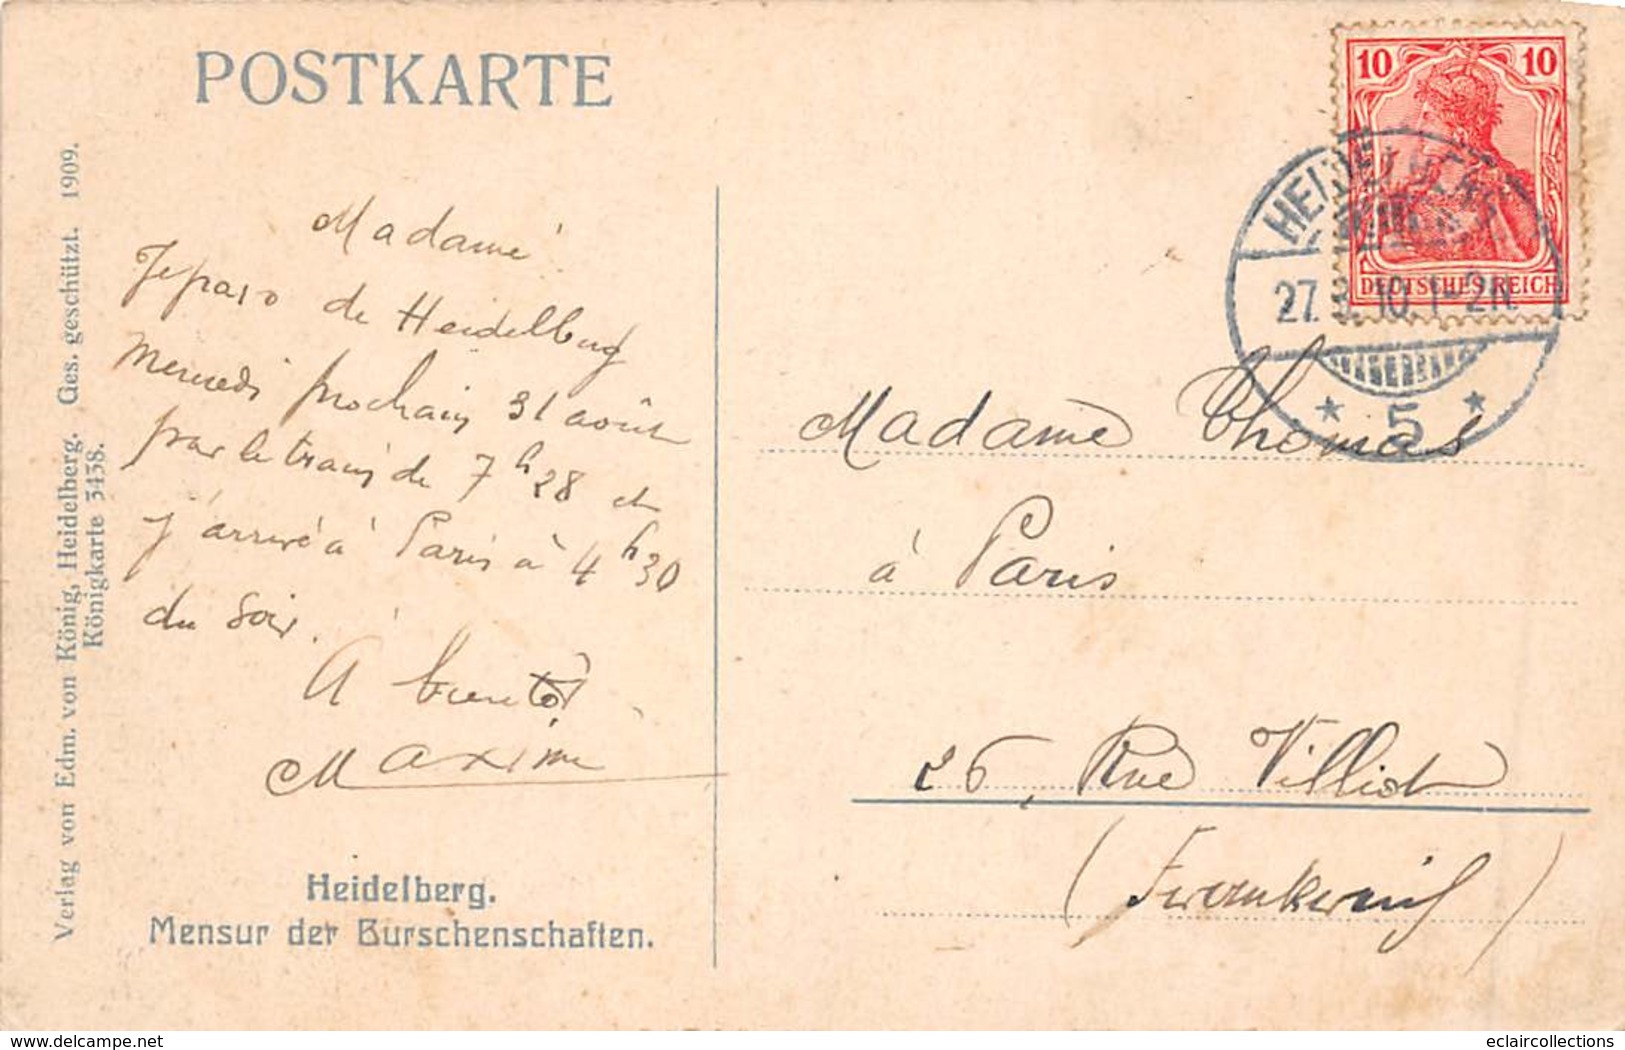 POSTKARTE
Verlag von Edm. von König, Heidelberg. Ges. geschützt. 1909.
Königkarte 3438.
Madame
Je pars de Heidelberg
Mercredi prochain 31 août
par le train de 7h28 et
j'arrive à Paris à 4h30
du soir.
A bientôt
Maxime
Heidelberg.
Mensur der Burschenschaften.
10 10
DEUTSCHES REICH
HEIDELBERG
27. 8. 10. 1-2N.
* 5 *
Madame Thomas
à Paris
26, Rue Villiot
(Frankreich)
delcampe.net
eclaircollections